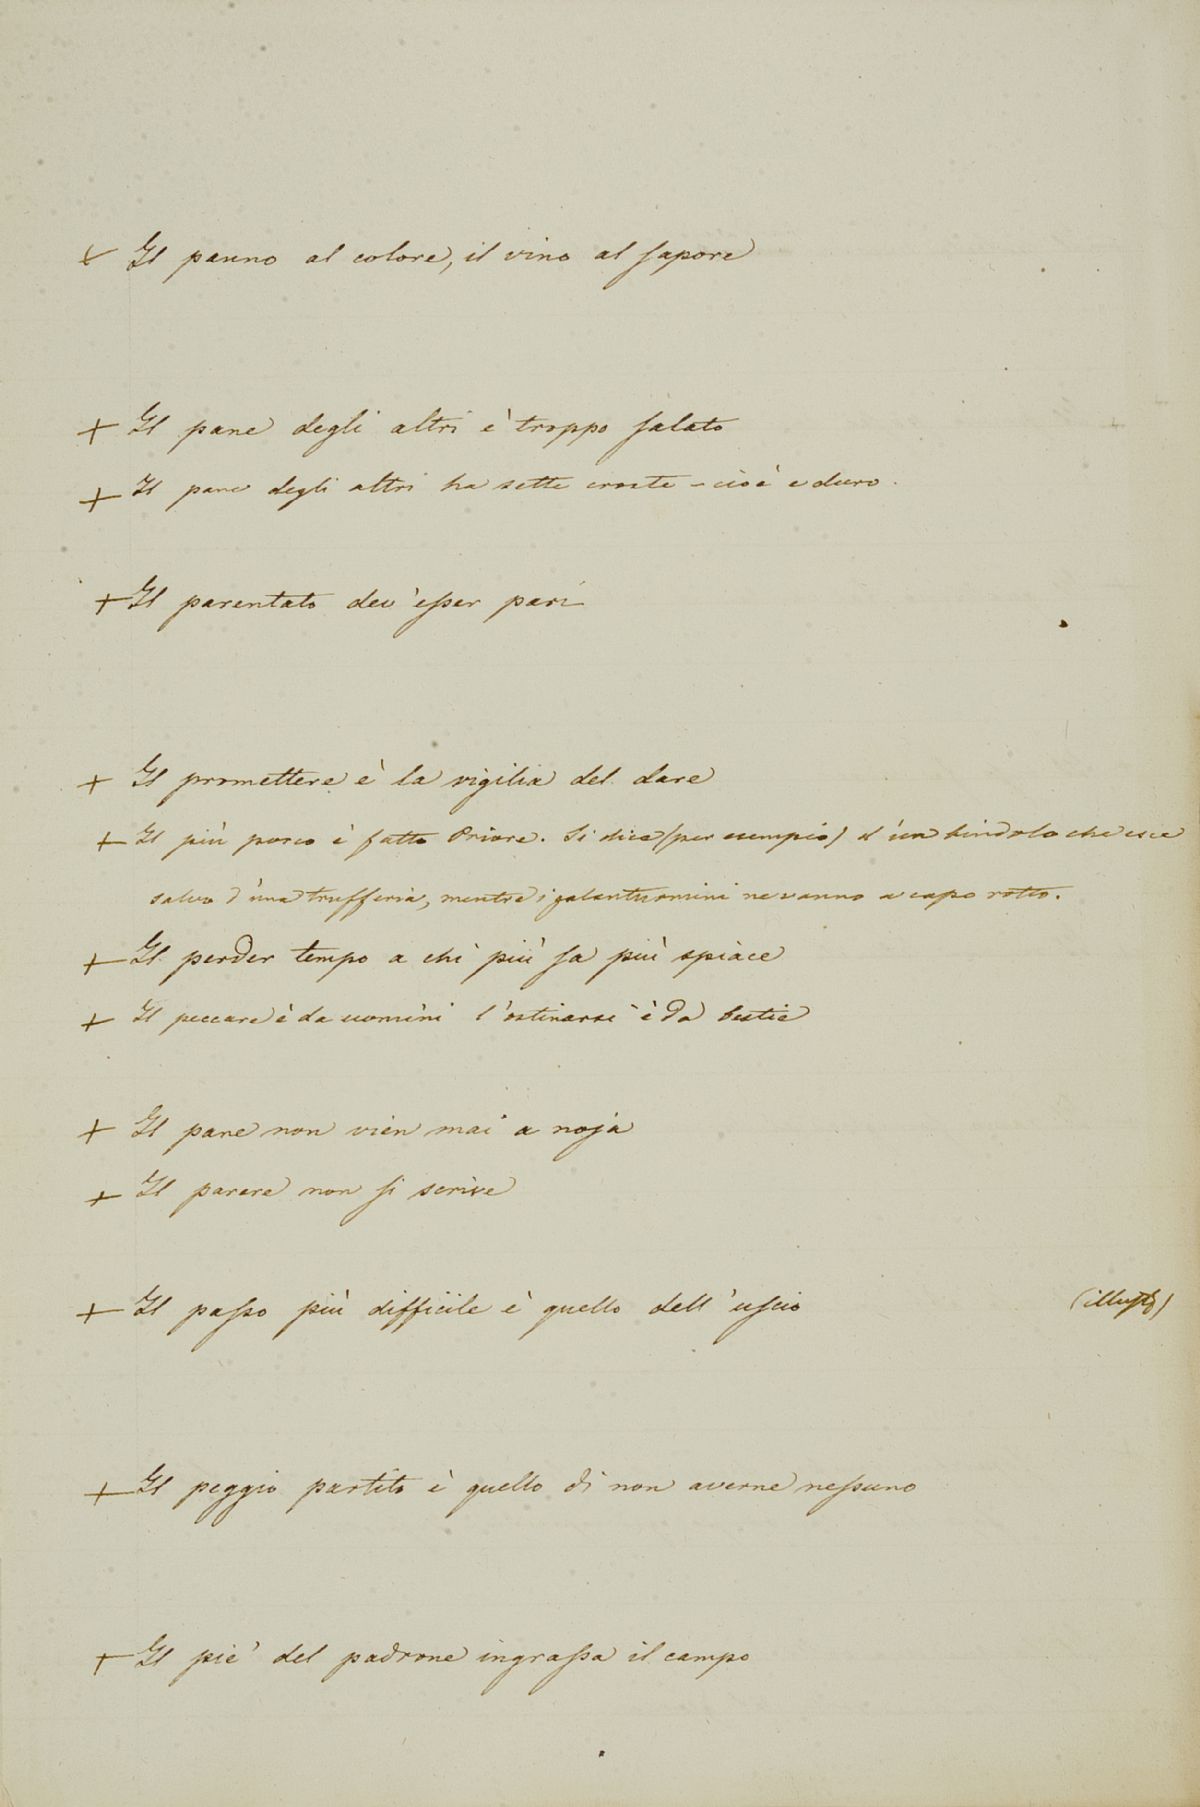 + Il panno al colore, il vino al sapore
+ Il pane degli altri è troppo salato
+ Il pane degli altri ha sette croste - cioè e duro.
+ Il parentato dev'esser pari
+ Il promettere è la vigilia del dare
+ Il più porco è fatto Priore. Si dice (per esempio) d'un bindolo che esce
salvo d'una trufferia, mentre i galantuomini ne vanno a capo rotto.
+ Il perder tempo a chi più sa più spiace
+ Il peccare è da uomini l'ostinarsi è da bestie
+ Il pane non vien mai a noja
+ Il parere non si scrive
+ Il passo più difficile è quello dell'uscio (illustr)
+ Il peggio partito è quello di non averne nessuno
+ Il piè del padrone ingrassa il campo